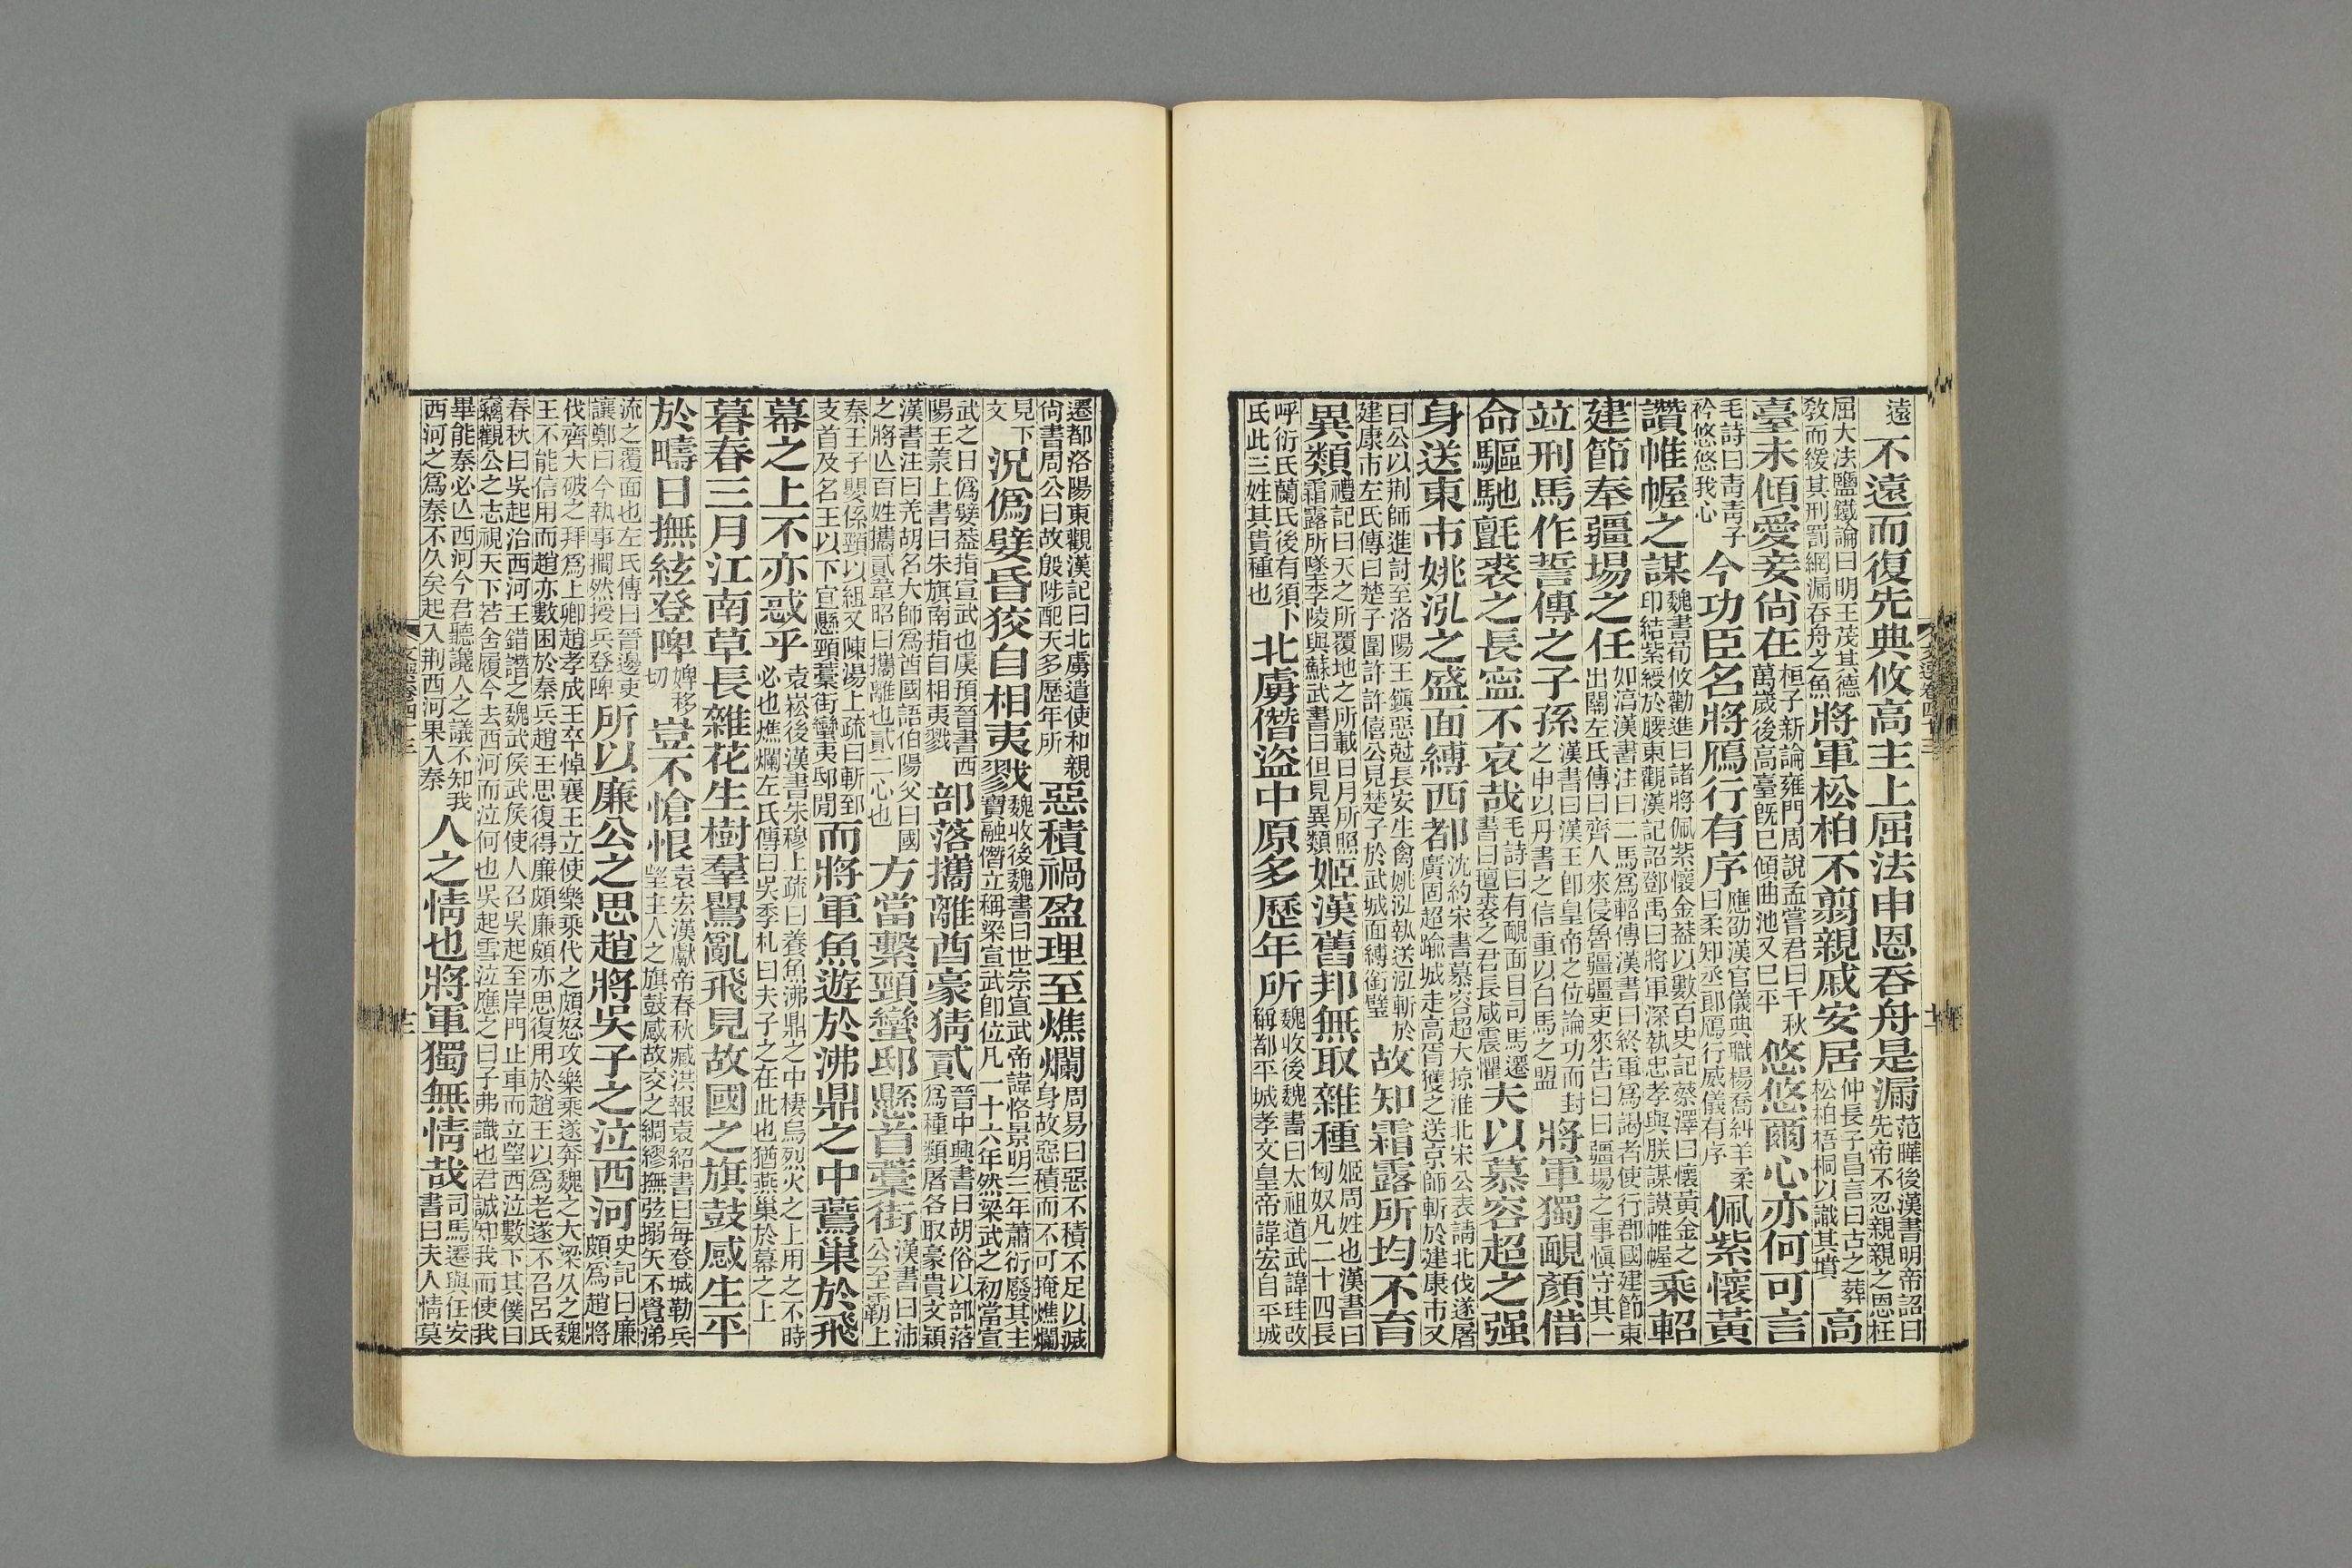 遠不遠而復先典攸高主上屈法申恩吞舟是漏范曄後漢書明帝詔曰先帝不忍親親之恩枉
屈大法鹽鐵論曰明王茂其德敎而緩其刑罰網漏吞舟之魚將軍松柏不翦親戚安居仲長子昌言曰古之葬松柏梧桐以識其墳高
臺未傾愛妾尙在桓子新論雍門周說孟嘗君曰千秋萬歲後高臺旣已傾曲池又已平悠悠爾心亦何可言
毛詩曰靑靑子衿悠悠我心今功臣名將鴈行有序應劭漢官儀典職楊喬糾羊柔曰柔知丞郎鴈行威儀有序佩紫懷黃
讚帷幄之謀魏書荀攸勸進曰諸將佩紫懷金葢以數百史記蔡澤曰懷黃金之印結紫綬於腰東觀漢記詔鄧禹曰將軍深執忠孝與朕謀謨帷幄乘軺
建節奉疆埸之任如淳漢書注曰二馬爲軺傳漢書曰終軍爲謁者使行郡國建節東出關左氏傳曰齊人來侵魯疆疆吏來告曰曰疆埸之事愼守其一
竝刑馬作誓傳之子孫漢書曰漢王卽皇帝之位論功而封之申以丹書之信重以白馬之盟將軍獨靦顏借
命驅馳氈裘之長寍不哀哉毛詩曰有靦面目司馬遷書曰氊裘之君長咸震懼夫以慕容超之强
身送東市姚泓之盛面縛西都沈約宋書慕容超大掠淮北宋公表請北伐遂屠廣固超踰城走高胥獲之送京師斬於建康市又
曰公以荆師進討至洛陽王鎭惡尅長安生禽姚泓執送泓斬於建康市左氏傳曰楚子圍許許僖公見楚子於武城面縛銜璧故知霜露所均不育
異類禮記曰天之所覆地之所載日月所照霜露所墜李陵與蘇武書曰但見異類姬漢舊邦無取雜種姬周姓也漢書曰匈奴凡二十四長
呼衍氏蘭氏後有須卜氏此三姓其貴種也北虜僭盜中原多歷年所魏收後魏書曰太祖道武諱珪改稱都平城孝文皇帝諱宏自平城
遷都洛陽東觀漢記曰北虜遣使和親尙書周公曰故殷陟配天多歷年所惡積禍盈理至燋爛周易曰惡不積不足以滅身故惡積而不可掩燋爛
見下文況僞孽昏狡自相夷戮魏收後魏書曰世宗宣武帝諱恪景明三年蕭衍廢其主寶融僭立稱梁宣武卽位凡一十六年然梁武之初當宣
武之日僞孽葢指宣武也虞預晉書西陽王羕上書曰朱旗南指自相夷戮部落攜離酋豪猜貳晉中興書曰胡俗以部落爲種類屠各取豪貴文穎
漢書注曰羌胡名大師爲酋國語伯陽父曰國之將亾百姓攜貳韋昭曰攜離也貳二心也方當繫頸蠻邸懸首藁街漢書曰沛公至霸上
秦王子嬰係頸以組又陳湯上疏曰斬郅支首及名王以下宜懸頸藁街蠻夷邸閒而將軍魚遊於沸鼎之中鷰巢於飛
幕之上不亦惑乎袁崧後漢書朱穆上疏曰養魚沸鼎之中棲烏烈火之上用之不時必也燋爛左氏傳曰吳季札曰夫子之在此也猶燕巢於幕之上
暮春三月江南草長雜花生樹羣鶯亂飛見故國之旗鼓感生平
於疇日撫絃登陴婢移切豈不愴恨袁宏漢獻帝春秋臧洪報袁紹書曰每登城勒兵望主人之旗鼓感故交之綢繆撫弦搦矢不覺涕
流之覆面也左氏傳曰晉邊吏讓鄭曰今執事撊然授兵登陴所以廉公之思趙將吳子之泣西河史記曰廉頗爲趙將
伐齊大破之拜爲上卿趙孝成王卒悼襄王立使樂乘代之頗怒攻樂乘遂奔魏之大梁久之魏王不能信用而趙亦數困於秦兵趙王思復得廉頗廉頗亦思復用於趙王以爲老遂不召呂氏
春秋曰吳起治西河王錯譖之魏武矦武矦使人召吳起至岸門止車而立望西泣數下其僕曰竊觀公之志視天下若舍履今去西河而泣何也吳起雪泣應之曰子弗識也君誠知我而使我
畢能秦必亾西河今君聽讒人之議不知我西河之爲秦不久矣起入荆西河果入秦人之情也將軍獨無情哉司馬遷與任安書曰夫人情莫